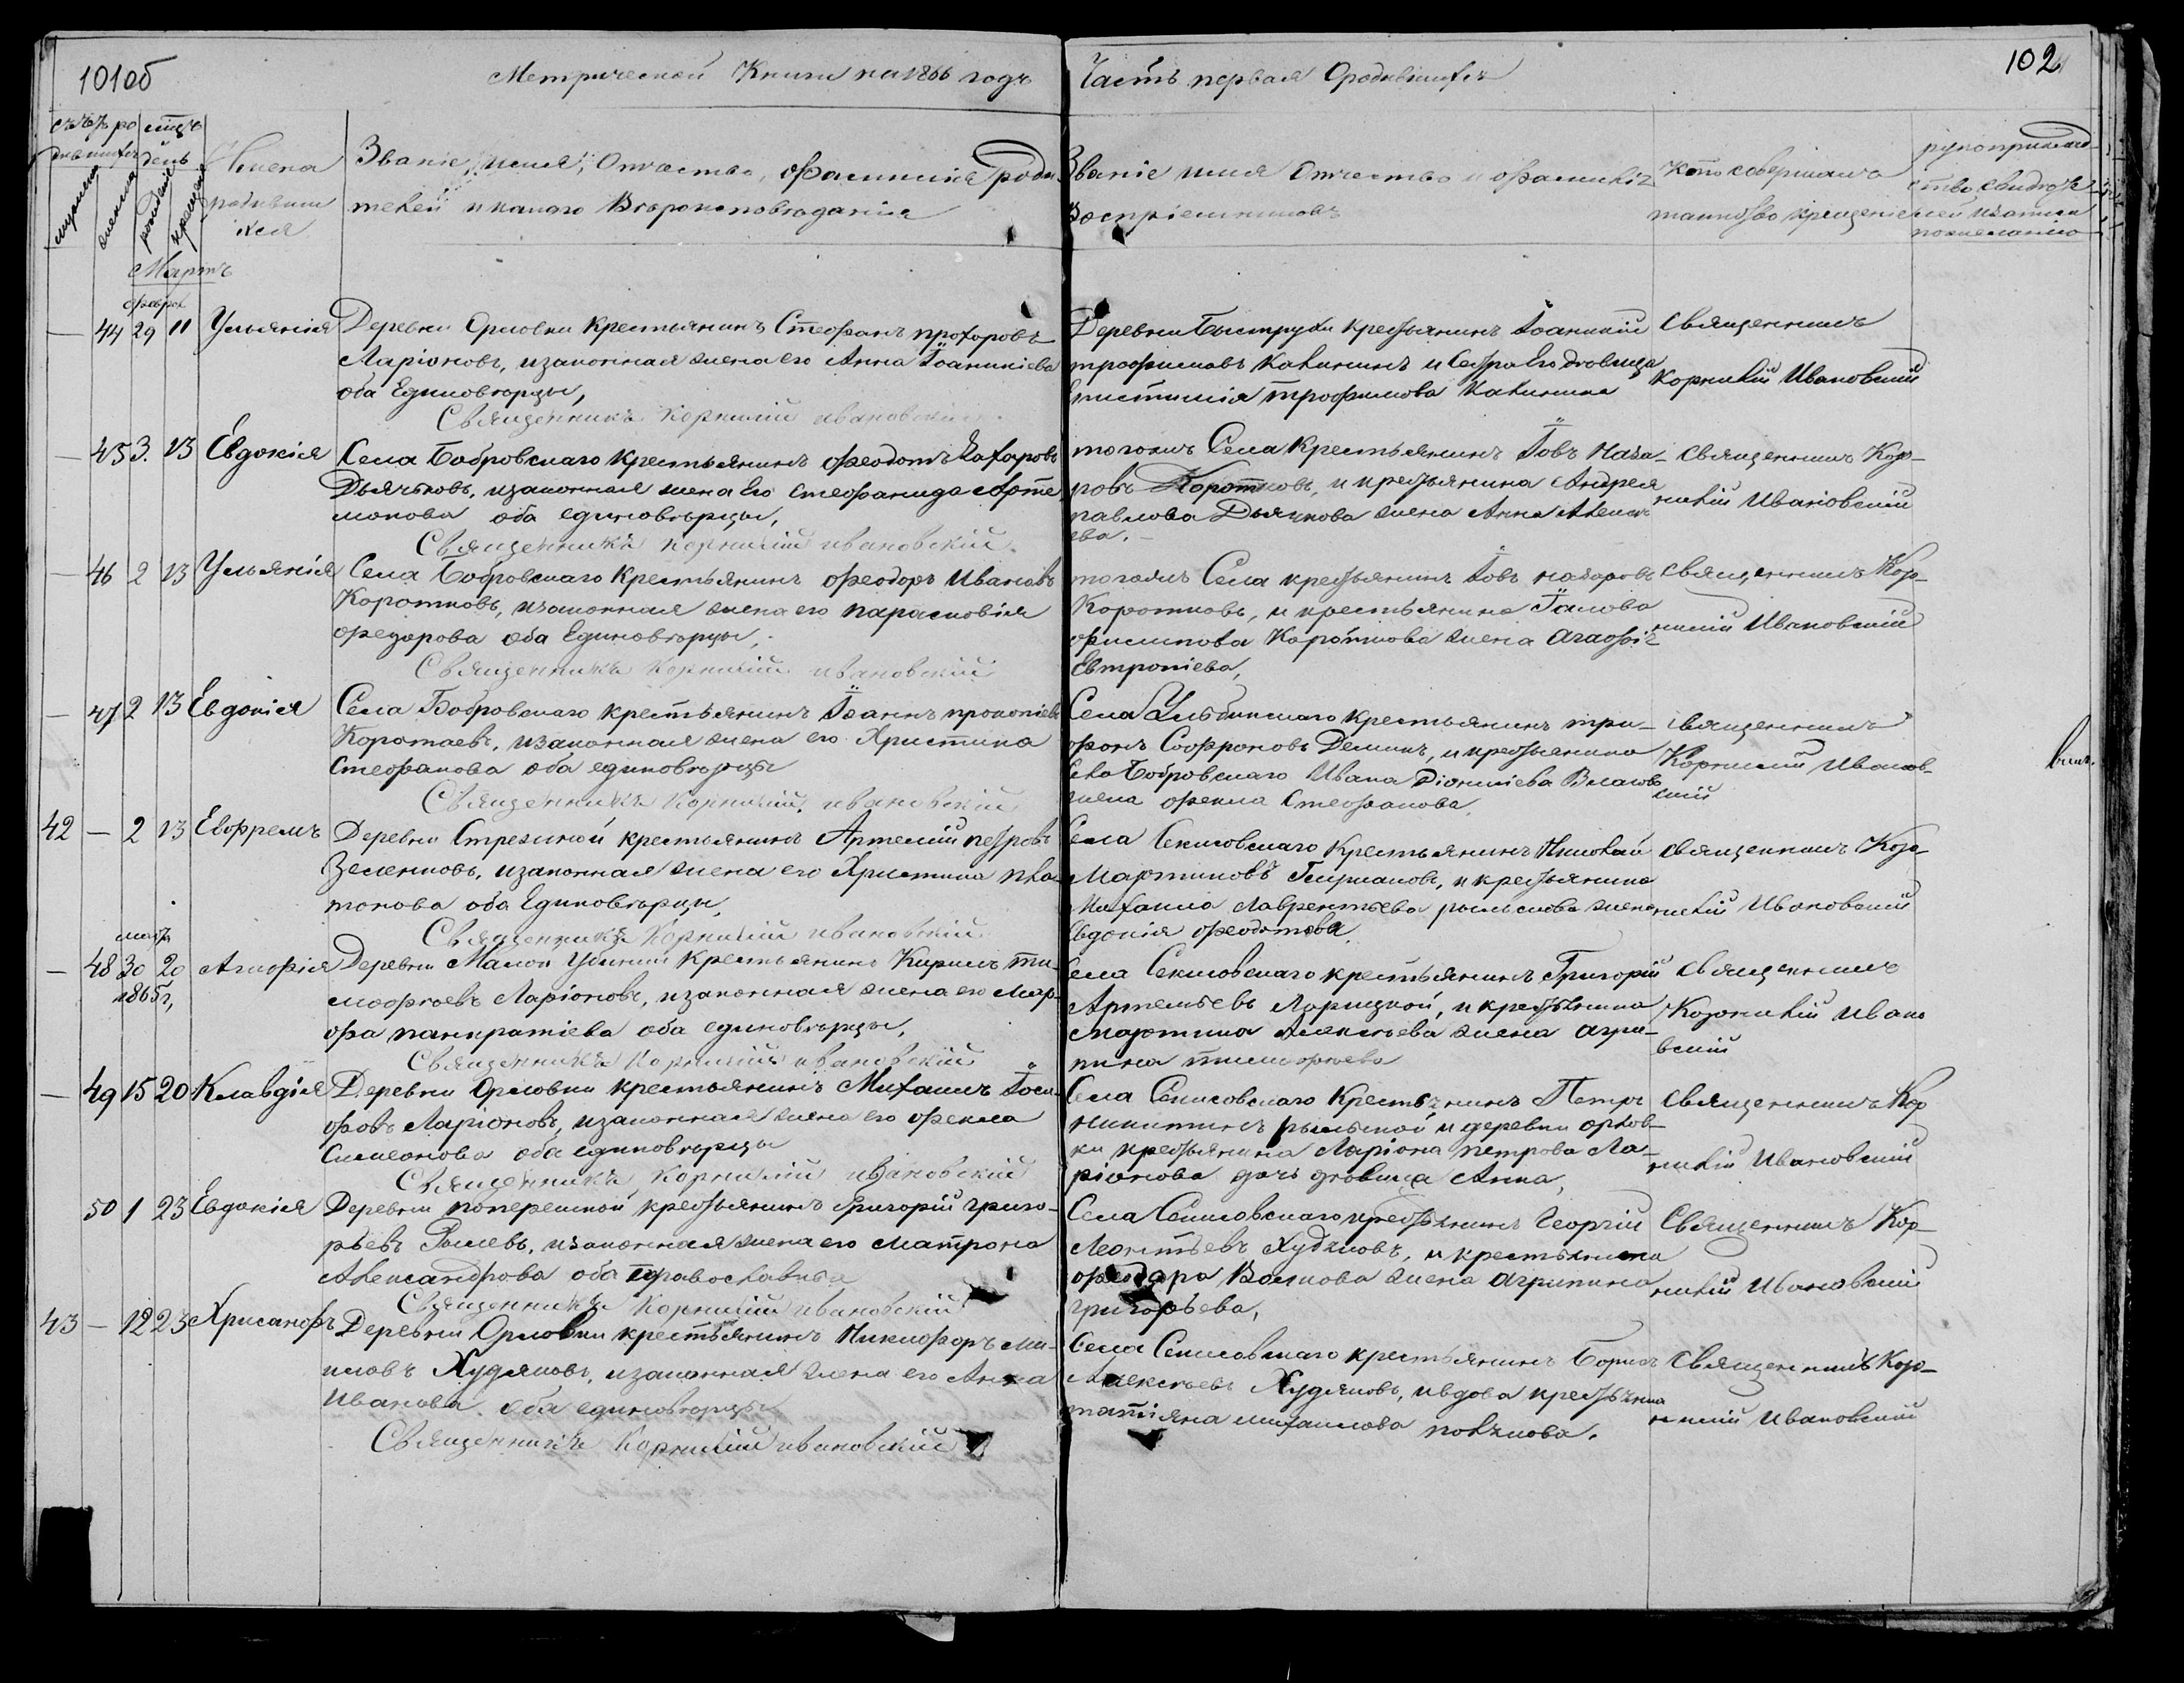 101об
Метрической Книги на 1866 годъ
Часть первая О родившихся
102
счетъ родившихся
мужеска
женска
мѣсяцъ день
рожденіе
крещеніе
Имена родившихся
Званіе, имя, Отчество, фамилія родителей и какого Вѣроисповѣданія
Званіе имя Отчество и фамилія Воспріемниковъ
кто совершалъ таинство крещенія
рукоприкладство свидѣтелей записи по желанію
Мартъ
феврал
— 44 29 11 Ульянія
Деревни Орловки Крестьянинъ Стефанъ прохоровъ
Ларіоновъ, изаконная жена его Анна Іоанникіева
оба Единовѣрцы,
Священникъ Корнилій ивановскій.
Деревни Быструхи крестьянинъ Іоанникій
трофимовъ Калининъ и Сестра Его дѣвица
трофимова Калинина
Священникъ
Корнилій Ивановскій
— 45 3. 13 Евдокія
Села Бобровскаго крестьянинъ феодотъ Захаровъ
Дьячковъ, изаконная жена Его Стефанида Арте
монова оба единовѣрцы,
Священникъ корнилій ивановскій.
тогожъ Села крестьянинъ Іовъ Наза-
ровъ Коротковъ, и крестьянина Андрея
павлова Дьячкова жена Анна Алексѣ
ева.
Священникъ Кор-
нилій Ивановскій
— 46 2 13 Ульянія
Села Бобровскаго Крестьянинъ феодоръ Ивановъ
Коротковъ, изаконная жена его парасковія
федорова оба Единовѣрцы,
Священникъ Корнилій ивановскій
тогожъ Села крестьянинъ Іовъ назаровъ
Коротковъ, и крестьянина Іакова
филипова Короткова жена Агафія
Евтропіева,
Священникъ Кор-
нилій Ивановскій
— 47 2 13 Евдокія
Села Бобровскаго крестьянинъ Іоаннъ прокопіевъ
Коротаевъ, изаконная жена его Христина
Стефанова оба единовѣрцы
Священникъ Корнилій ивановскій
Села Ульбинскаго крестьянинъ три-
фонъ Софроновъ Деминъ, и крестьянина
Села Бобровскаго Ивана Діонисіева Власова
жена фекла Стефанова.
Священникъ
Корнилій Иванов-
скій
42 — 2 13 Ефремъ
Деревни Стрежной крестьянинъ Артемій петровъ
Зеленковъ, изаконная жена его Христина пла-
тонова оба Единовѣрцы,
Священникъ Корнилій ивановскій
Села Секисовскаго Крестьянинъ Николай
Мартиновъ, и крестьянина
Михаила Лаврентьева рыльскова жена
Евдокія феодотова.
Священникъ Кор-
нилій Ивановскій
— 48 30 20
1865 г,
Деревни Малой Убинки Крестьянинъ Кирилъ ти-
мофѣевъ Ларіоновъ, изаконная жена его Мар-
фа панкратіева оба единовѣрцы,
Священникъ Корнилій ивановскій
Села Секисовскаго крестьянинъ Григорій
Артемьевъ, и крестьянина
Мартина Алексѣева жена агри-
пина тимофѣева
Священникъ
Корнилій Ивано
вскій
— 49 15 20 Клавдія
Деревни Орловки крестьянинъ Михаилъ Іоси-
фовъ Ларіоновъ, изаконная жена его фекла
Симеонова оба единовѣрцы
Священникъ Корнилій ивановскій
Села Секисовскаго Крестьянинъ Петръ
Никитинъ рыльской и деревни орлов-
ки крестьянина Ларіона петрова Ла-
ріонова дочь дѣвица Анна,
Священникъ Кор
нилій Ивановскій
50 1 23 Евдокія
Деревни поперешной крестьянинъ григорій григо-
рьевъ, изаконная жена его Матрона
Александрова оба православныя
Священникъ Корнилій ивановскій
Села Секисовскаго крестьянинъ Георгій
Леонтьевъ Худяковъ, и крестьянина
феодора Волкова жена агрипина
григорьева,
Священникъ Кор-
нилій Ивановскій
43 — 12 23 Хрисанфъ
Деревни Орловки крестьянинъ Никифоръ
Худяковъ, изаконная жена его Анна
Иванова. оба единовѣрцы
Священникъ Корнилій ивановскій
Села Секисовскаго крестьянинъ Борисъ
Алексѣевъ Худяковъ, ивдова крестьянка
татіяна михаилова полѣкова.
Священникъ Кор-
нилій Ивановскій